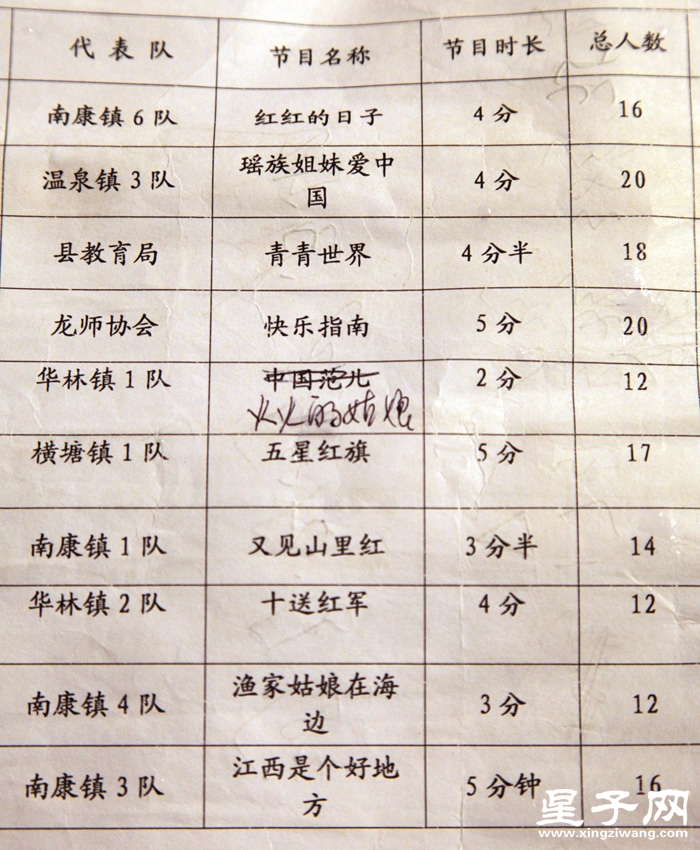 代表队 节目名称 节目时长 总人数
南康镇6队 红红的日子 4分 16
温泉镇3队 瑶族姐妹爱中国 4分 20
县教育局 青青世界 4分半 18
龙师协会 快乐指南 5分 20
华林镇1队 中国范儿 2分 12
火火的姑娘
横塘镇1队 五星红旗 5分 17
南康镇1队 又见山里红 3分半 14
华林镇2队 十送红军 4分 12
南康镇4队 渔家姑娘在海边 3分 12
南康镇3队 江西是个好地方 5分钟 16
星子网
www.xingziwang.com